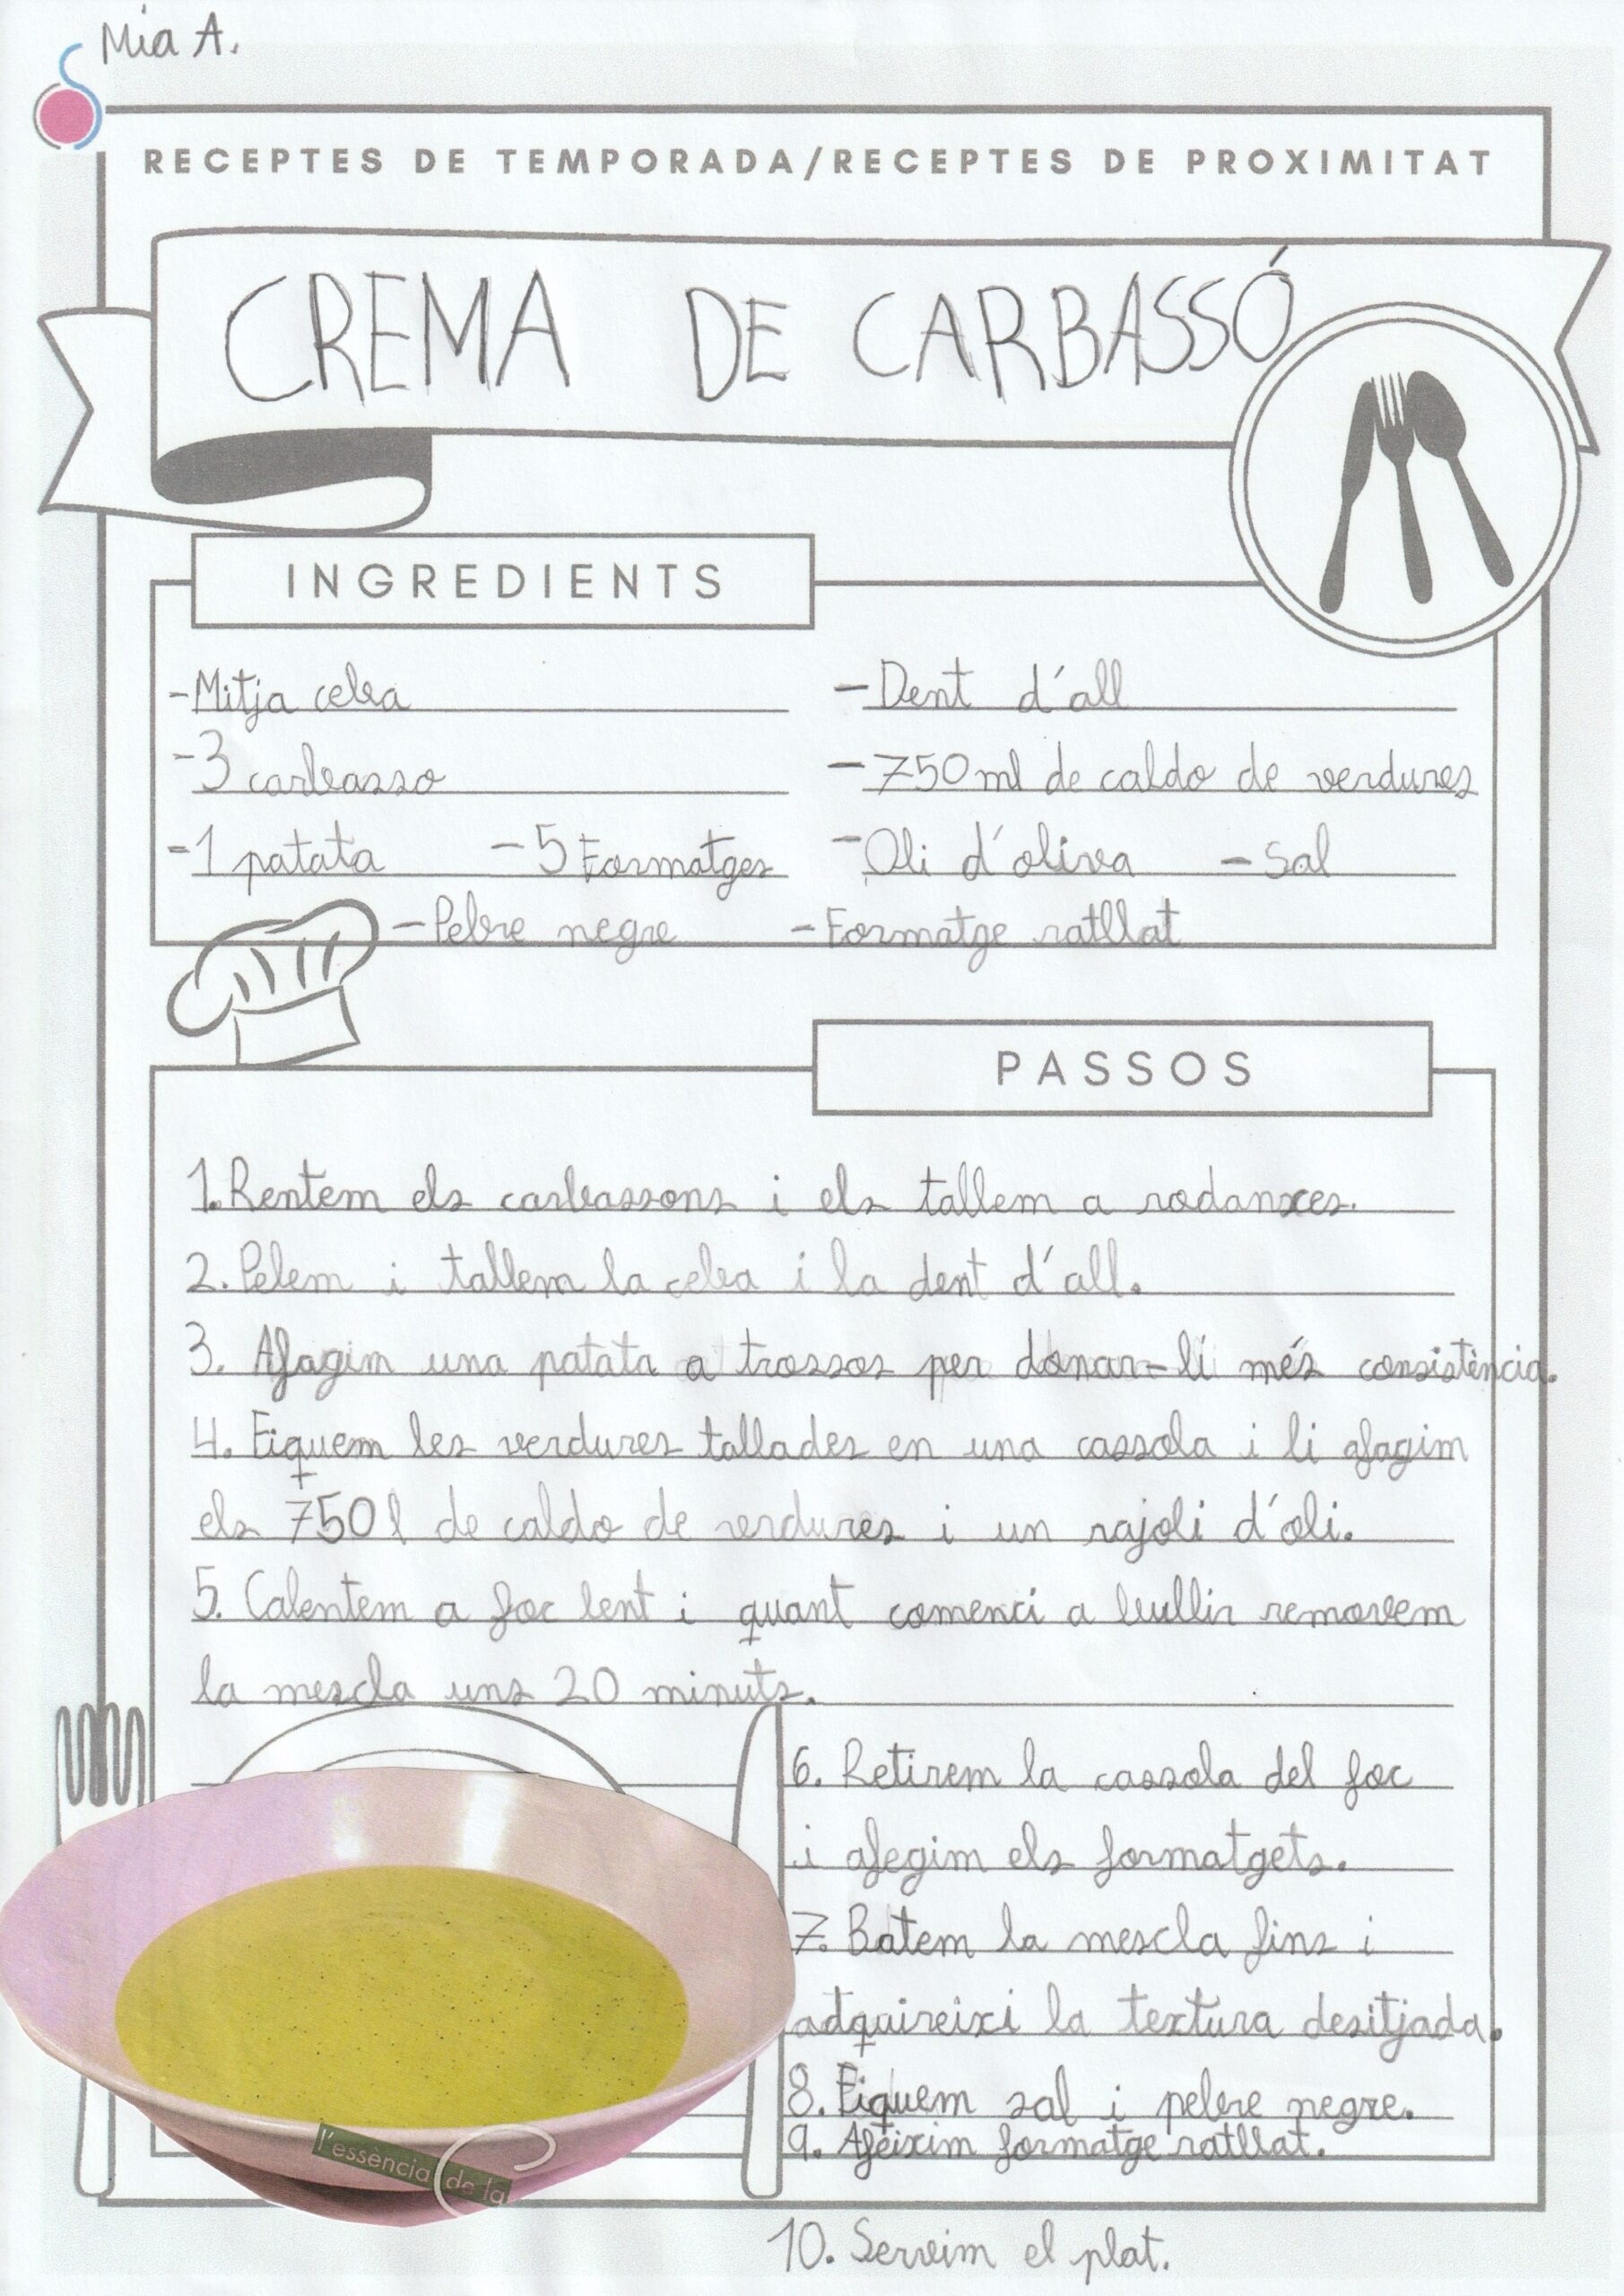 Mia A.
RECEPTES DE TEMPORADA/RECEPTES DE PROXIMITAT
CREMA DE CARBASSÓ
INGREDIENTS
-Mitja ceba
-3 carbasso
-1 patata -5 Formatges
-Pebre negre
-Dent d'all
-750ml de caldo de verdures
-Oli d'oliva -Sal
-Formatge ratllat
PASSOS
1.Rentem els carbassons i els tallem a rodanxes.
2.Pelem i tallem la ceba i la dent d'all.
3. Afagim una patata a trossos per donar-li més consistència.
4. Fiquem les verdures tallades en una cassola i li afagim
els 750l de caldo de verdures i un rajolí d'oli.
5. Calentem a foc lent i quant comenci a bullir removem
la mescla uns 20 minuts.
6. Retirem la cassola del foc
i afegim els formatgets.
7. Batem la mescla fins i
adquireixi la textura desitjada.
8. Fiquem sal i pebre negre.
9. Afeixim formatge ratllat.
10. Serveim el plat.
l'essència de la